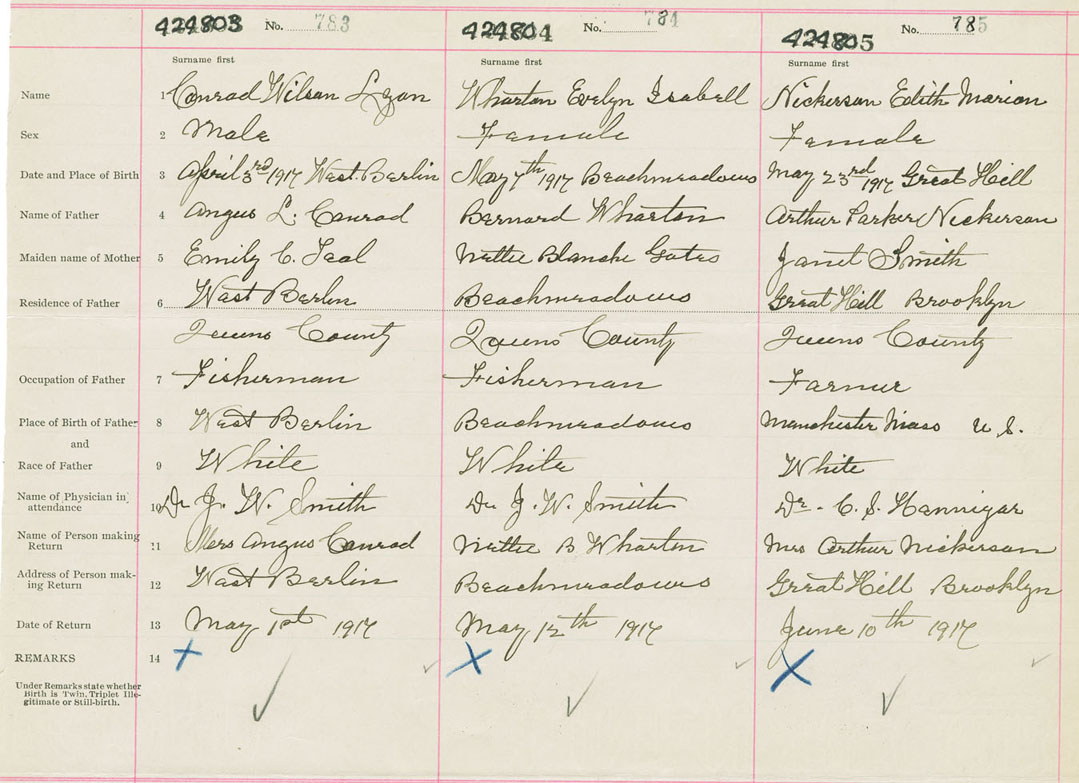 424803 No. 783 424804 No. 784 424805 No. 785
Surname first Surname first Surname first
Name 1 Conrad Wilson Wharton Evelyn Isabell Nickerson Edith Marion
Sex 2 Male Female Female
Date and Place of Birth 3 April 3rd 1917 West Berlin May 7th 1917 Beachmeadows May 23rd 1917 Great Hill
Name of Father 4 Angus L. Conrad Bernard Wharton Arthur Parker Nickerson
Maiden name of Mother 5 Emily C. Teal Nettie Blanche Gates Janet Smith
Residence of Father 6 West Berlin Beachmeadows Great Hill Brooklyn
Queens County Queens County Queens County
Occupation of Father 7 Fisherman Fisherman Farmer
Place of Birth of Father 8 West Berlin Beachmeadows Manchester Mass U.S.
and
Race of Father 9 White White White
Name of Physician in attendance 10 Dr J. W. Smith Dr J. W. Smith Dr. C. S. Hennigar
Name of Person making Return 11 Mers Angus Conrad Nettie B Wharton Mrs Arthur Nickerson
Address of Person mak-ing Return 12 West Berlin Beachmeadows Great Hill Brooklyn
Date of Return 13 May 1st 1917 May 12th 1917 June 10th 1917
REMARKS 14 X X X
Under Remarks state whether
Birth is Twin, Triplet Ille-
gitimate or Still-birth.